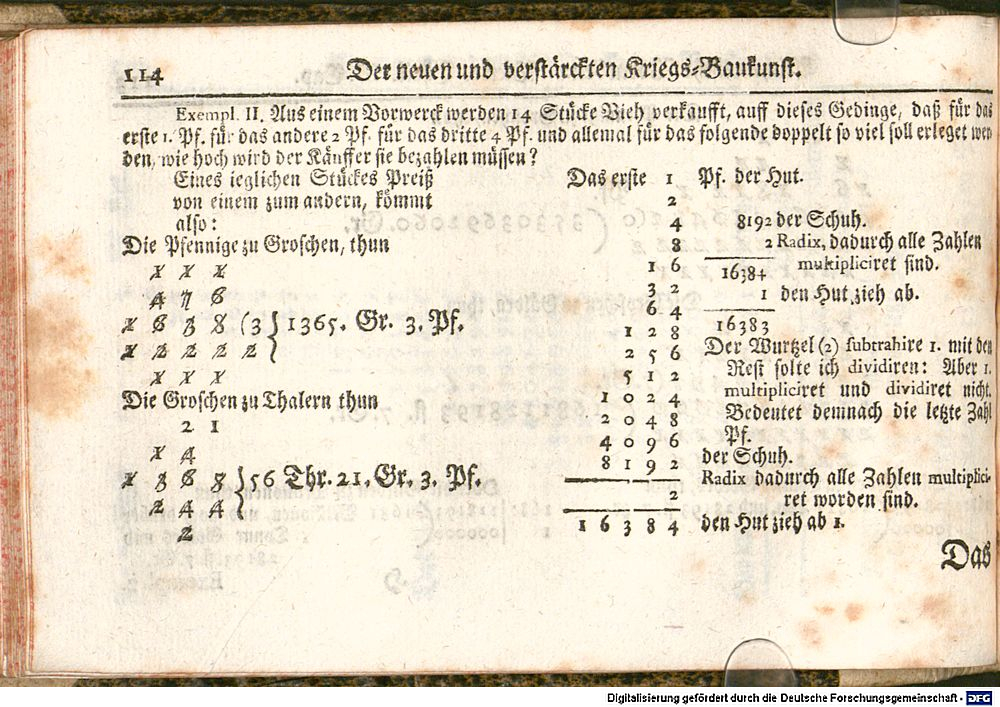 114 Der neuen und verstärckten Kriegs-Baukunst.
Exempl. II. Aus einem Vorwerck werden 14 Stücke Vieh verkaufft, auff dieses Gedinge, daß für das
erste 1. Pf. für das andere 2 Pf. für das dritte 4 Pf. und allemal für das folgende doppelt so viel soll erleget wer
den, wie hoch wird der Käuffer sie bezahlen müssen?
Eines ieglichen Stückes Preiß
von einem zum andern, kömmt
also:
Die Pfennige zu Groschen, thun
1 1 1
4 7 6
1 6 3 8 (3 } 1365. Gr. 3. Pf.
1 2 2 2 2
1 1 1
Die Groschen zu Thalern thun
2 1
1 4
1 3 6 8 } 56 Thr. 21. Gr. 3. Pf.
2 4 4
2
Das erste 1 Pf. der Hut.
2
4
8
1 6
3 2
6 4
1 2 8
2 5 6
5 1 2
1 0 2 4
2 0 4 8
4 0 9 6
8 1 9 2 der Schuh.
2 Radix dadurch alle Zahlen multiplici-
ret worden sind.
1 6 3 8 4 den Hut zieh ab 1.
8192 der Schuh.
2 Radix, dadurch alle Zahlen
16384 multipliciret sind.
1 den Hut zieh ab.
16383
Der Wurtzel (2) subtrahire 1. mit den
Rest solte ich dividiren: Aber 1.
multipliciret und dividiret nicht.
Bedeutet demnach die letzte Zahl
Pf.
Das
Digitalisierung gefördert durch die Deutsche Forschungsgemeinschaft - DFG